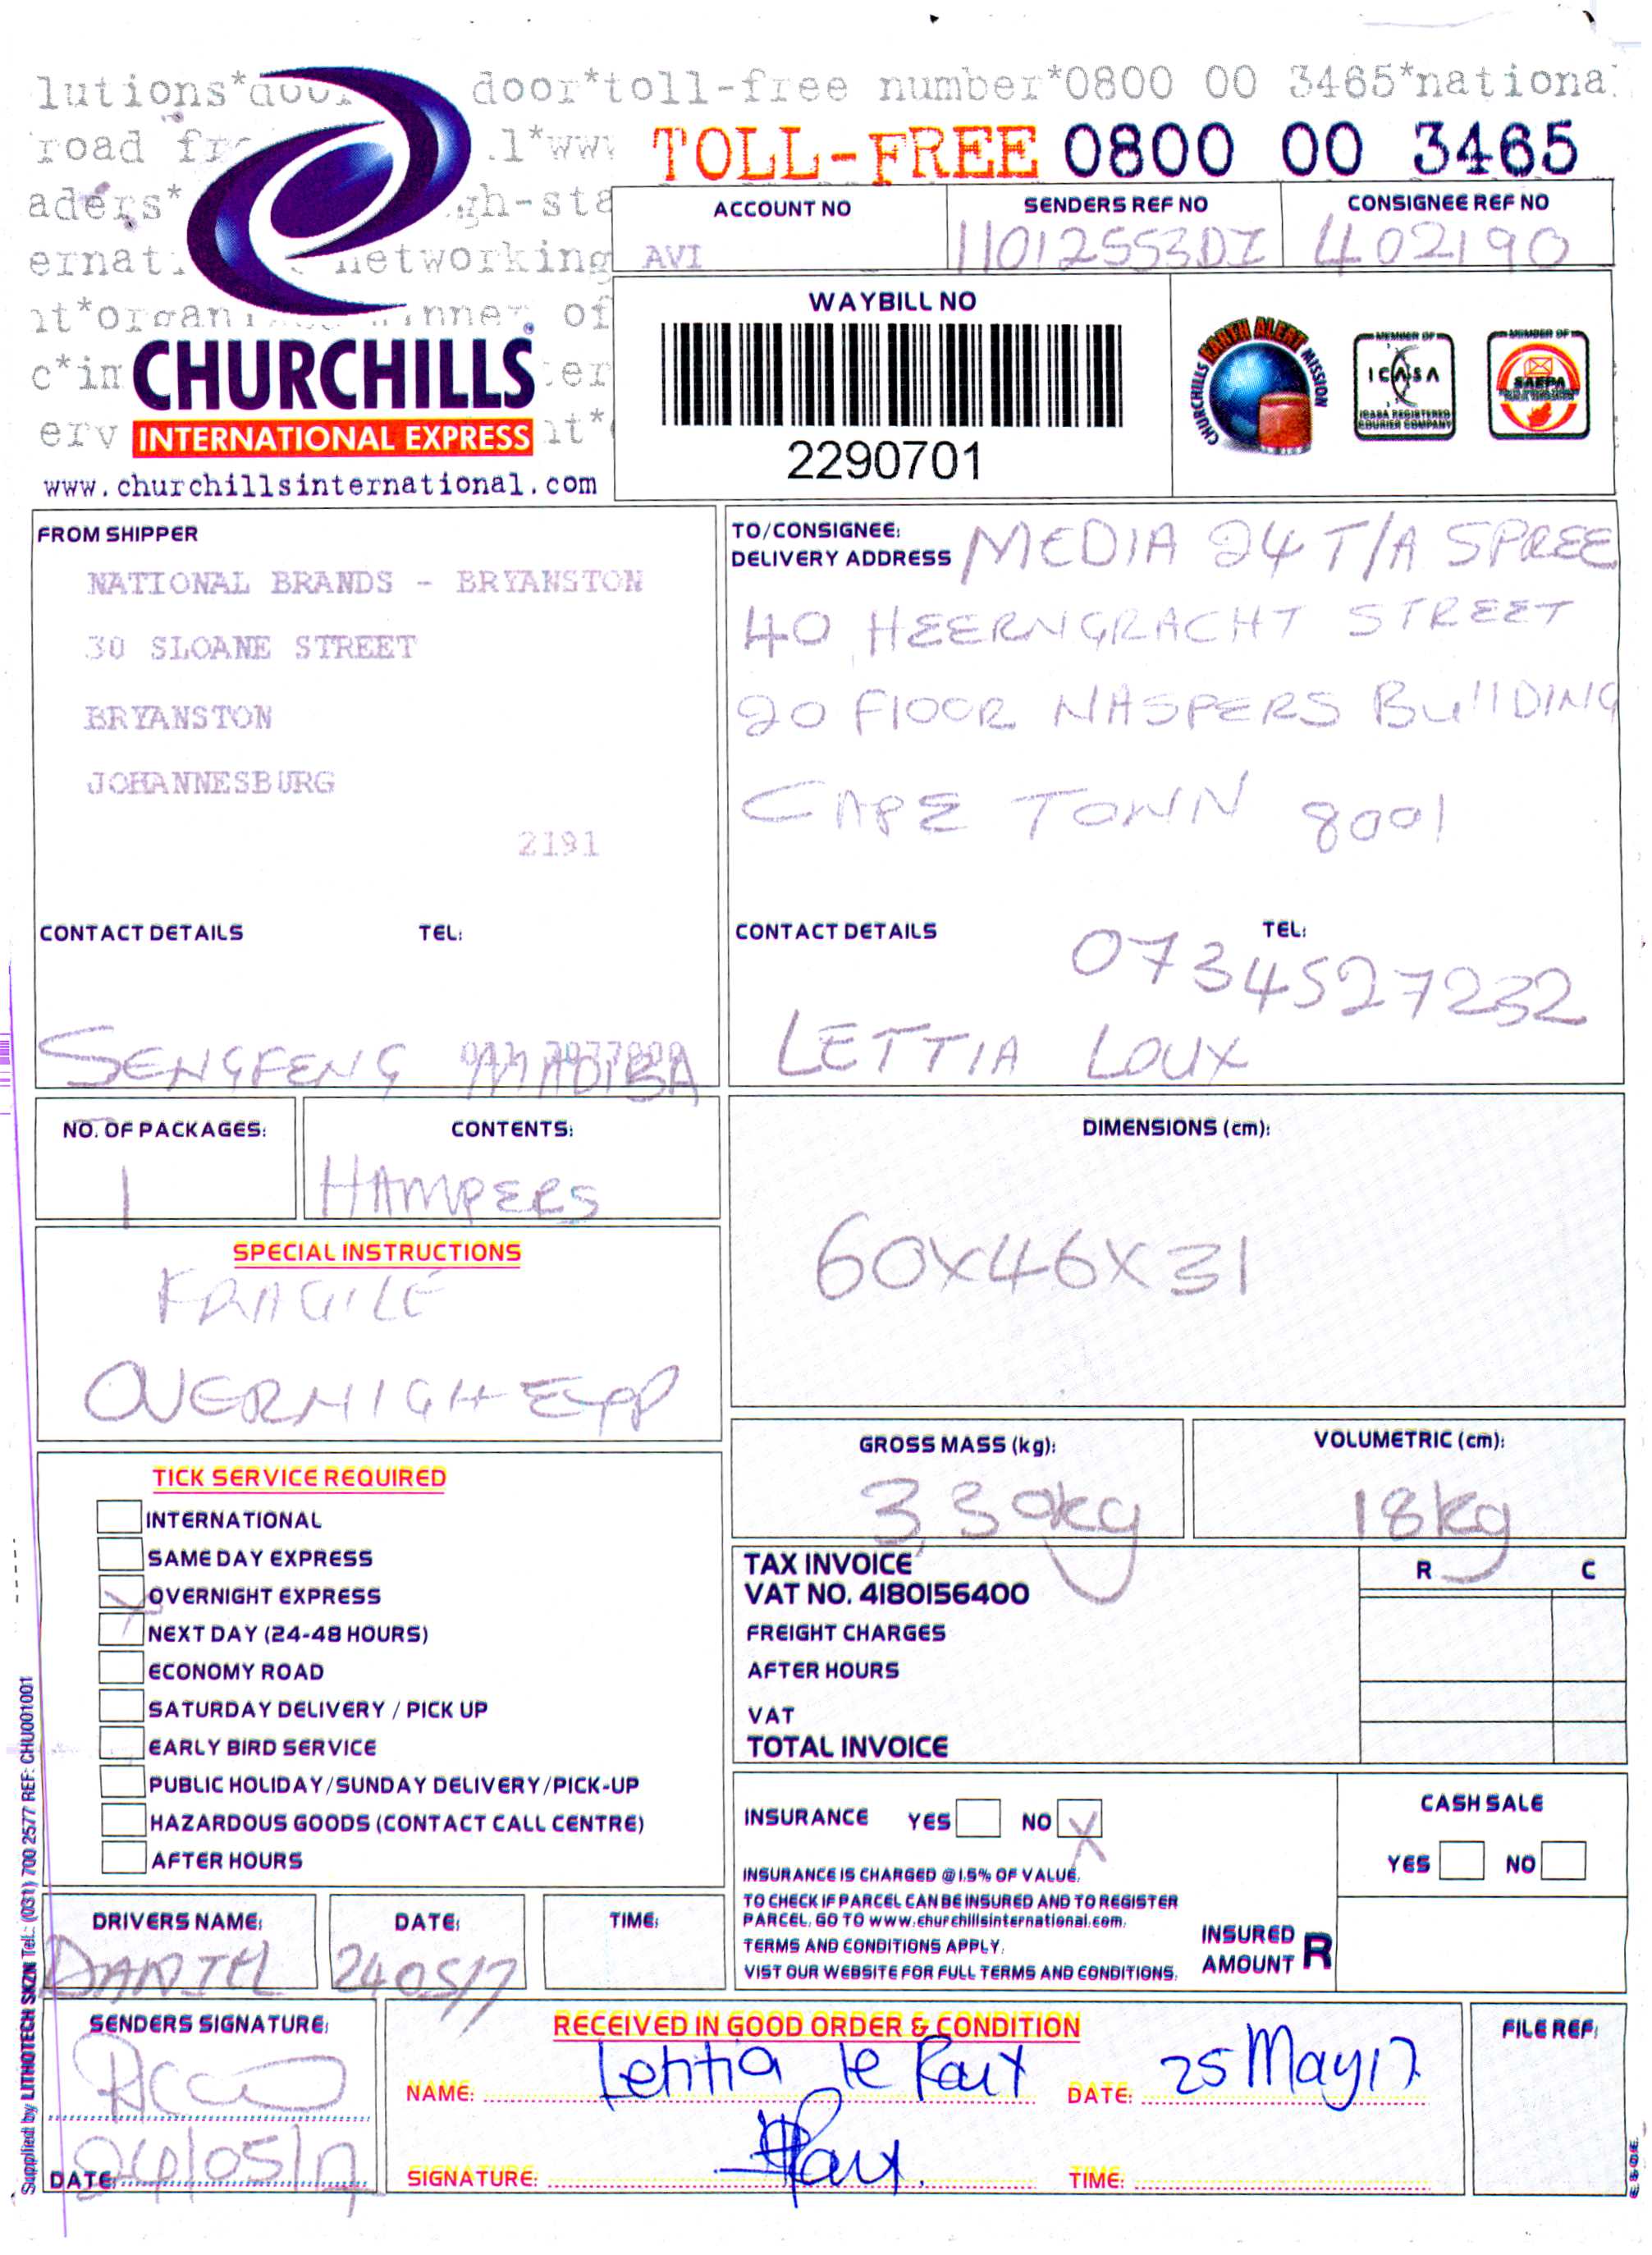 door*toll-free number*0800 00 3465*national
TOLL-FREE 0800 00 3465
ACCOUNT NO
AVI
SENDERS REF NO
11012553DI
CONSIGNEE REF NO
402190
WAYBILL NO
2290701
CHURCHILLS EARTH ALERT MISSION
MEMBER OF
ICASA
ICASA REGISTERED
COURIER COMPANY
MEMBER OF
SAEPA
CHURCHILLS
INTERNATIONAL EXPRESS
www.churchillsinternational.com
FROM SHIPPER
NATIONAL BRANDS - BRYANSTON
30 SLOANE STREET
BRYANSTON
JOHANNESBURG
2191
CONTACT DETAILS TEL:
SENGFENG MADIBA
TO/CONSIGNEE:
DELIVERY ADDRESS MEDIA 24 T/A SPREE
40 HEERNGRACHT STREET
20 FLOOR NASPERS BUILDING
CAPE TOWN 8001
CONTACT DETAILS TEL:
0734527232
LETTIA LOUX
NO. OF PACKAGES:
1
CONTENTS:
HAMPERS
DIMENSIONS (cm):
60X46X31
SPECIAL INSTRUCTIONS
FRAGILE
OVERNIGH EXP
GROSS MASS (kg):
3,30kg
VOLUMETRIC (cm):
18kg
TICK SERVICE REQUIRED
INTERNATIONAL
SAME DAY EXPRESS
X OVERNIGHT EXPRESS
NEXT DAY (24-48 HOURS)
ECONOMY ROAD
SATURDAY DELIVERY / PICK UP
EARLY BIRD SERVICE
PUBLIC HOLIDAY/SUNDAY DELIVERY/PICK-UP
HAZARDOUS GOODS (CONTACT CALL CENTRE)
AFTER HOURS
TAX INVOICE R C
VAT NO. 4180156400
FREIGHT CHARGES
AFTER HOURS
VAT
TOTAL INVOICE
INSURANCE YES NO X
INSURANCE IS CHARGED @ 1.5% OF VALUE.
TO CHECK IF PARCEL CAN BE INSURED AND TO REGISTER
PARCEL, GO TO www.churchillsinternational.com.
TERMS AND CONDITIONS APPLY.
VIST OUR WEBSITE FOR FULL TERMS AND CONDITIONS.
CASH SALE
YES NO
INSURED
AMOUNT R
DRIVERS NAME:
DANIEL
DATE:
240517
TIME:
SENDERS SIGNATURE:
DATE: 24/05/17
RECEIVED IN GOOD ORDER & CONDITION
NAME: Letitia le Roux DATE: 25 May 17
SIGNATURE: TIME:
FILE REF:
Supplied by LITHOTECH SKZN Tel.: (031) 700 2577 REF: CHU001001
E & OE.